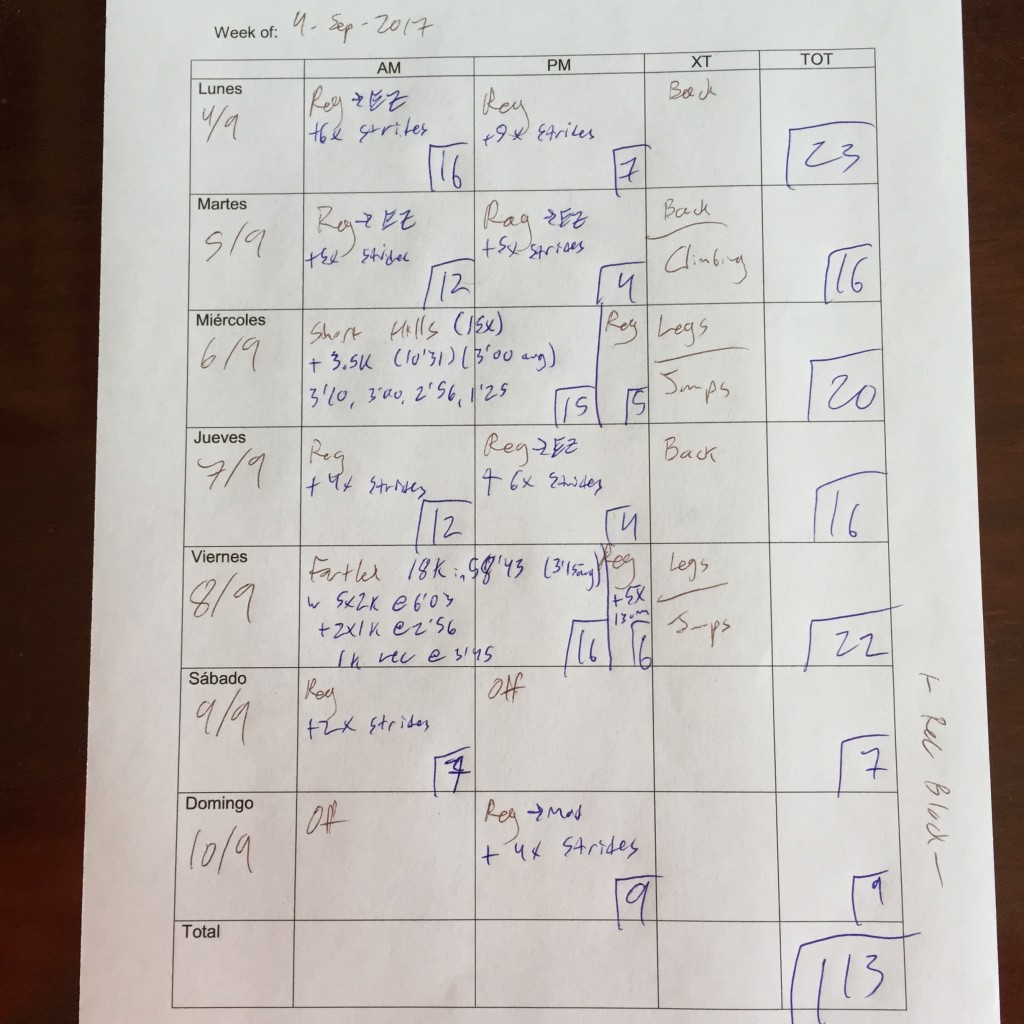 Week of: 4-Sep-2017
AM PM XT TOT
Lunes
4/9
Reg → EZ
+6x Strides
16
Reg
+9x Strides
7
Back
23
Martes
5/9
Reg → EZ
+5x Strides
12
Reg → EZ
+5x Strides
4
Back
Climbing
16
Miércoles
6/9
Short Hills (15x)
+ 3.5K (10'31) (3'00 avg)
3'10, 3'00, 2'56, 1'25
15
Reg
5
Legs
Jumps
20
Jueves
7/9
Reg
+ 4x Strides
12
Reg → EZ
+ 6x Strides
4
Back
16
Viernes
8/9
Fartlek 18K in 58'43 (3'15avg)
w 5x2K @ 6'03
+2x1K @ 2'56
1K rec @ 3'45
16
Reg
+5x
6
Legs
Jumps
22
Sábado
9/9
Reg
+2x Strides
7
Off
7
Domingo
10/9
Off
Reg → Mod
+ 4x Strides
9
9
Total
113
- Rec Block -